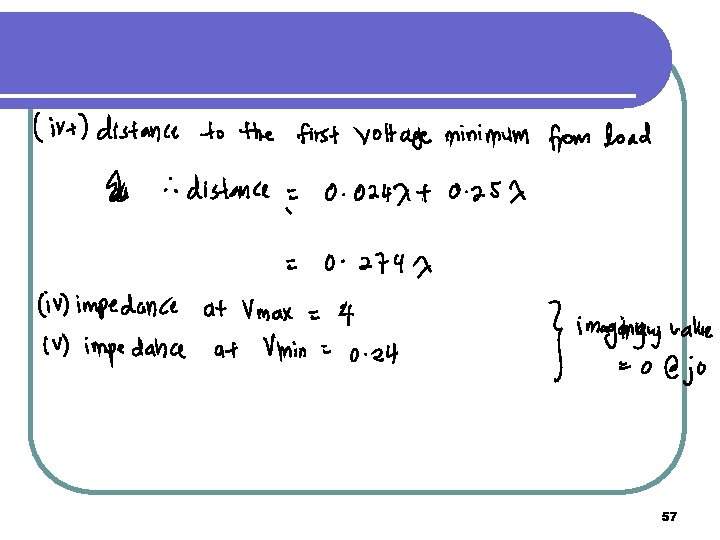 (iv+) distance to the first voltage minimum from load
∴ distance = 0.024λ + 0.25λ
= 0.274λ
(iv) impedance at Vmax = 4
(v) impedance at Vmin = 0.24
} imaginary value
= 0 @ j0
57